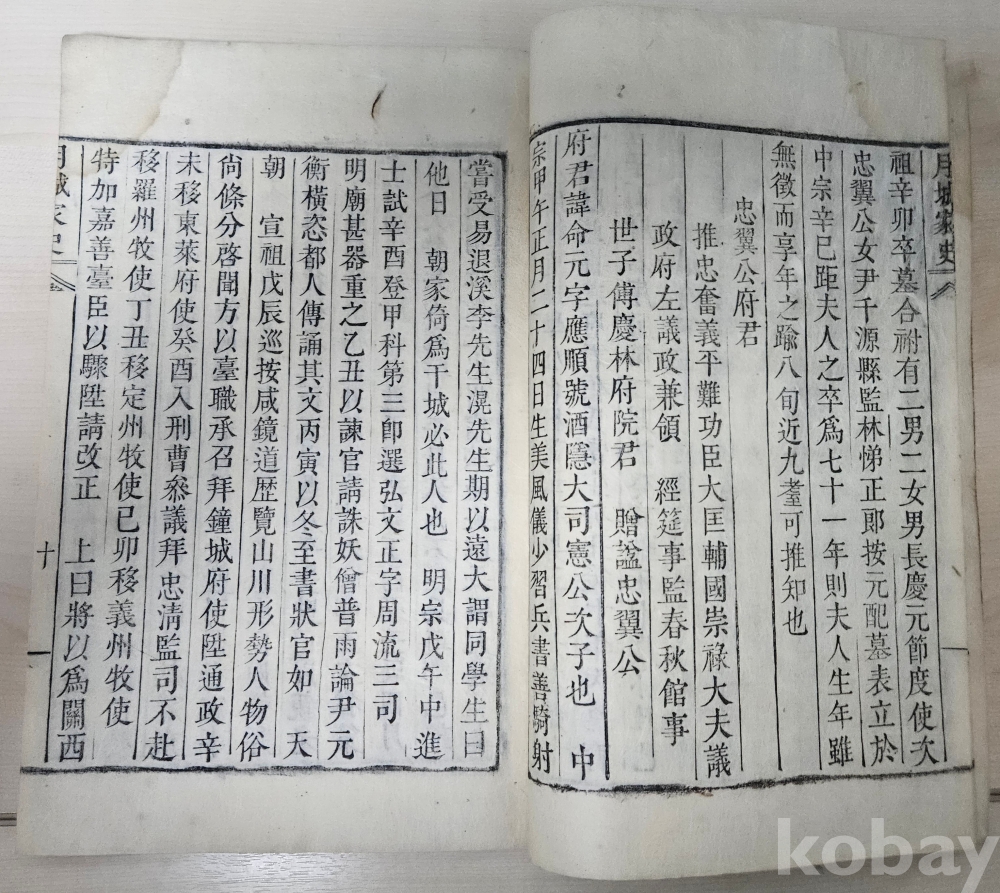 月城家史
祖辛卯卒墓合祔有二男二女男長慶元節度使次
忠翼公女尹千源縣監林悌正郞按元配墓表立於
中宗辛巳距夫人之卒爲七十一年則夫人生年雖
無徵而享年之踰八旬近九耋可推知也
忠翼公府君
推忠奮義平難功臣大匡輔國崇祿大夫議
政府左議政兼領 經筵事監春秋館事
世子傅慶林府院君 贈諡忠翼公
府君諱命元字應順號酒隱大司憲公次子也 中
宗甲午正月二十四日生美風儀少習兵書善騎射
嘗受易退溪李先生滉先生期以遠大謂同學生曰
他日 朝家倚爲干城必此人也 明宗戊午中進
士試辛酉登甲科第三卽選弘文正字周流三司
明廟甚器重之乙丑以諫官請誅妖僧普雨論尹元
衡橫恣都人傳誦其文丙寅以冬至書狀官如 天
朝 宣祖戊辰巡按咸鏡道歷覽山川形勢人物俗
尙條分啓聞方以臺職承召拜鐘城府使陞通政辛
未移東萊府使癸酉入刑曹參議拜忠淸監司不赴
移羅州牧使丁丑移定州牧使己卯移義州牧使
特加嘉善臺臣以驟陞請改正 上曰將以爲關西
月城家史
十
kobay